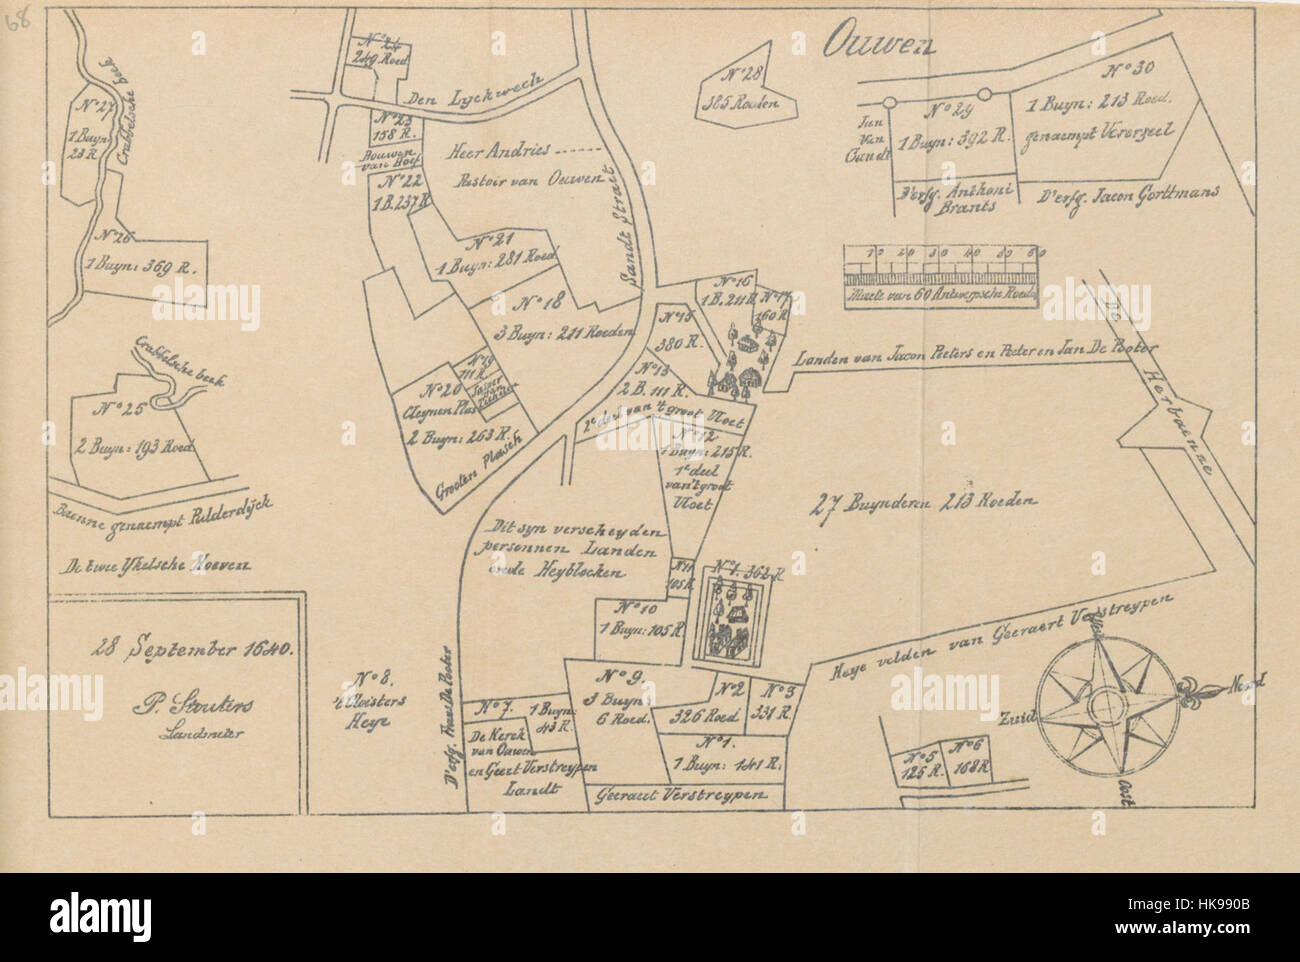 68
Ouwen
N° 24
249 Roed.
Den Lyckwech
N° 23
158 R.
Bouwen
van Hoef
N° 22
1 B. 237 R.
Heer Andries
Pastoir van Ouwen
Sandt Straet
N° 21
1 Buyn: 281 Roed.
N° 18
3 Buyn: 211 Roeden
N° 19
111 R.
N° 20
Cleynen Plas
2 Buyn: 263 R.
Grooten Plasch
N° 27
1 Buyn:
23 R.
Crabbelsche beek
N° 26
1 Buyn: 369 R.
Crabbelsche beek
N° 25
2 Buyn: 193 Roed.
Baenne genaempt Pulderdijck
De twee Ykelsche Hoeven
28 September 1640.
P. Stouters
Landmeter
N° 28
385 Roeden
N° 29
1 Buyn: 392 R.
Jan
Van
Gandt
N° 30
1 Buyn: 213 Roed.
genaempt Vererseel
D'erfg. Anthoni
Brants
D'erfg. Jacon Gorttmans
10 20 30 40 50 60
Maete van 60 Antwerpsche Roeden
N° 16
1 B. 211 R.
N° 17
160 R.
N° 15
380 R.
N° 13
2 B. 111 R.
2e deel van 't groot Vloet
N° 12
1 Buyn: 215 R.
1e deel
van 't groot
Vloet
Landen van Jacon Peeters en Peeter en Jan De Pooter
De Herbaenne
27 Buynderen 213 Roeden
Dit syn verscheyden
personnen Landen
ende Heyblocken
N° 11
105 R.
N° 1. 362 R.
N° 10
1 Buyn: 105 R.
N° 8.
't Cloisters
Heye
D'erfg. Frans De Pooter
N° 9.
3 Buyn:
6 Roed.
N° 2
326 Roed.
N° 3
331 R.
N° 7.
1 Buyn:
43 R.
De Kerck
van Ouwen
en Geert Verstreypen
Landt
N° 1.
1 Buyn: 141 R.
Geeraert Verstreypen
Heye velden van Geeraert Verstreypen
N° 5
125 R.
N° 6
168 R
West
Noord
Zuid
Oost
alamy
alamy stock photo
HK990B
www.alamy.com